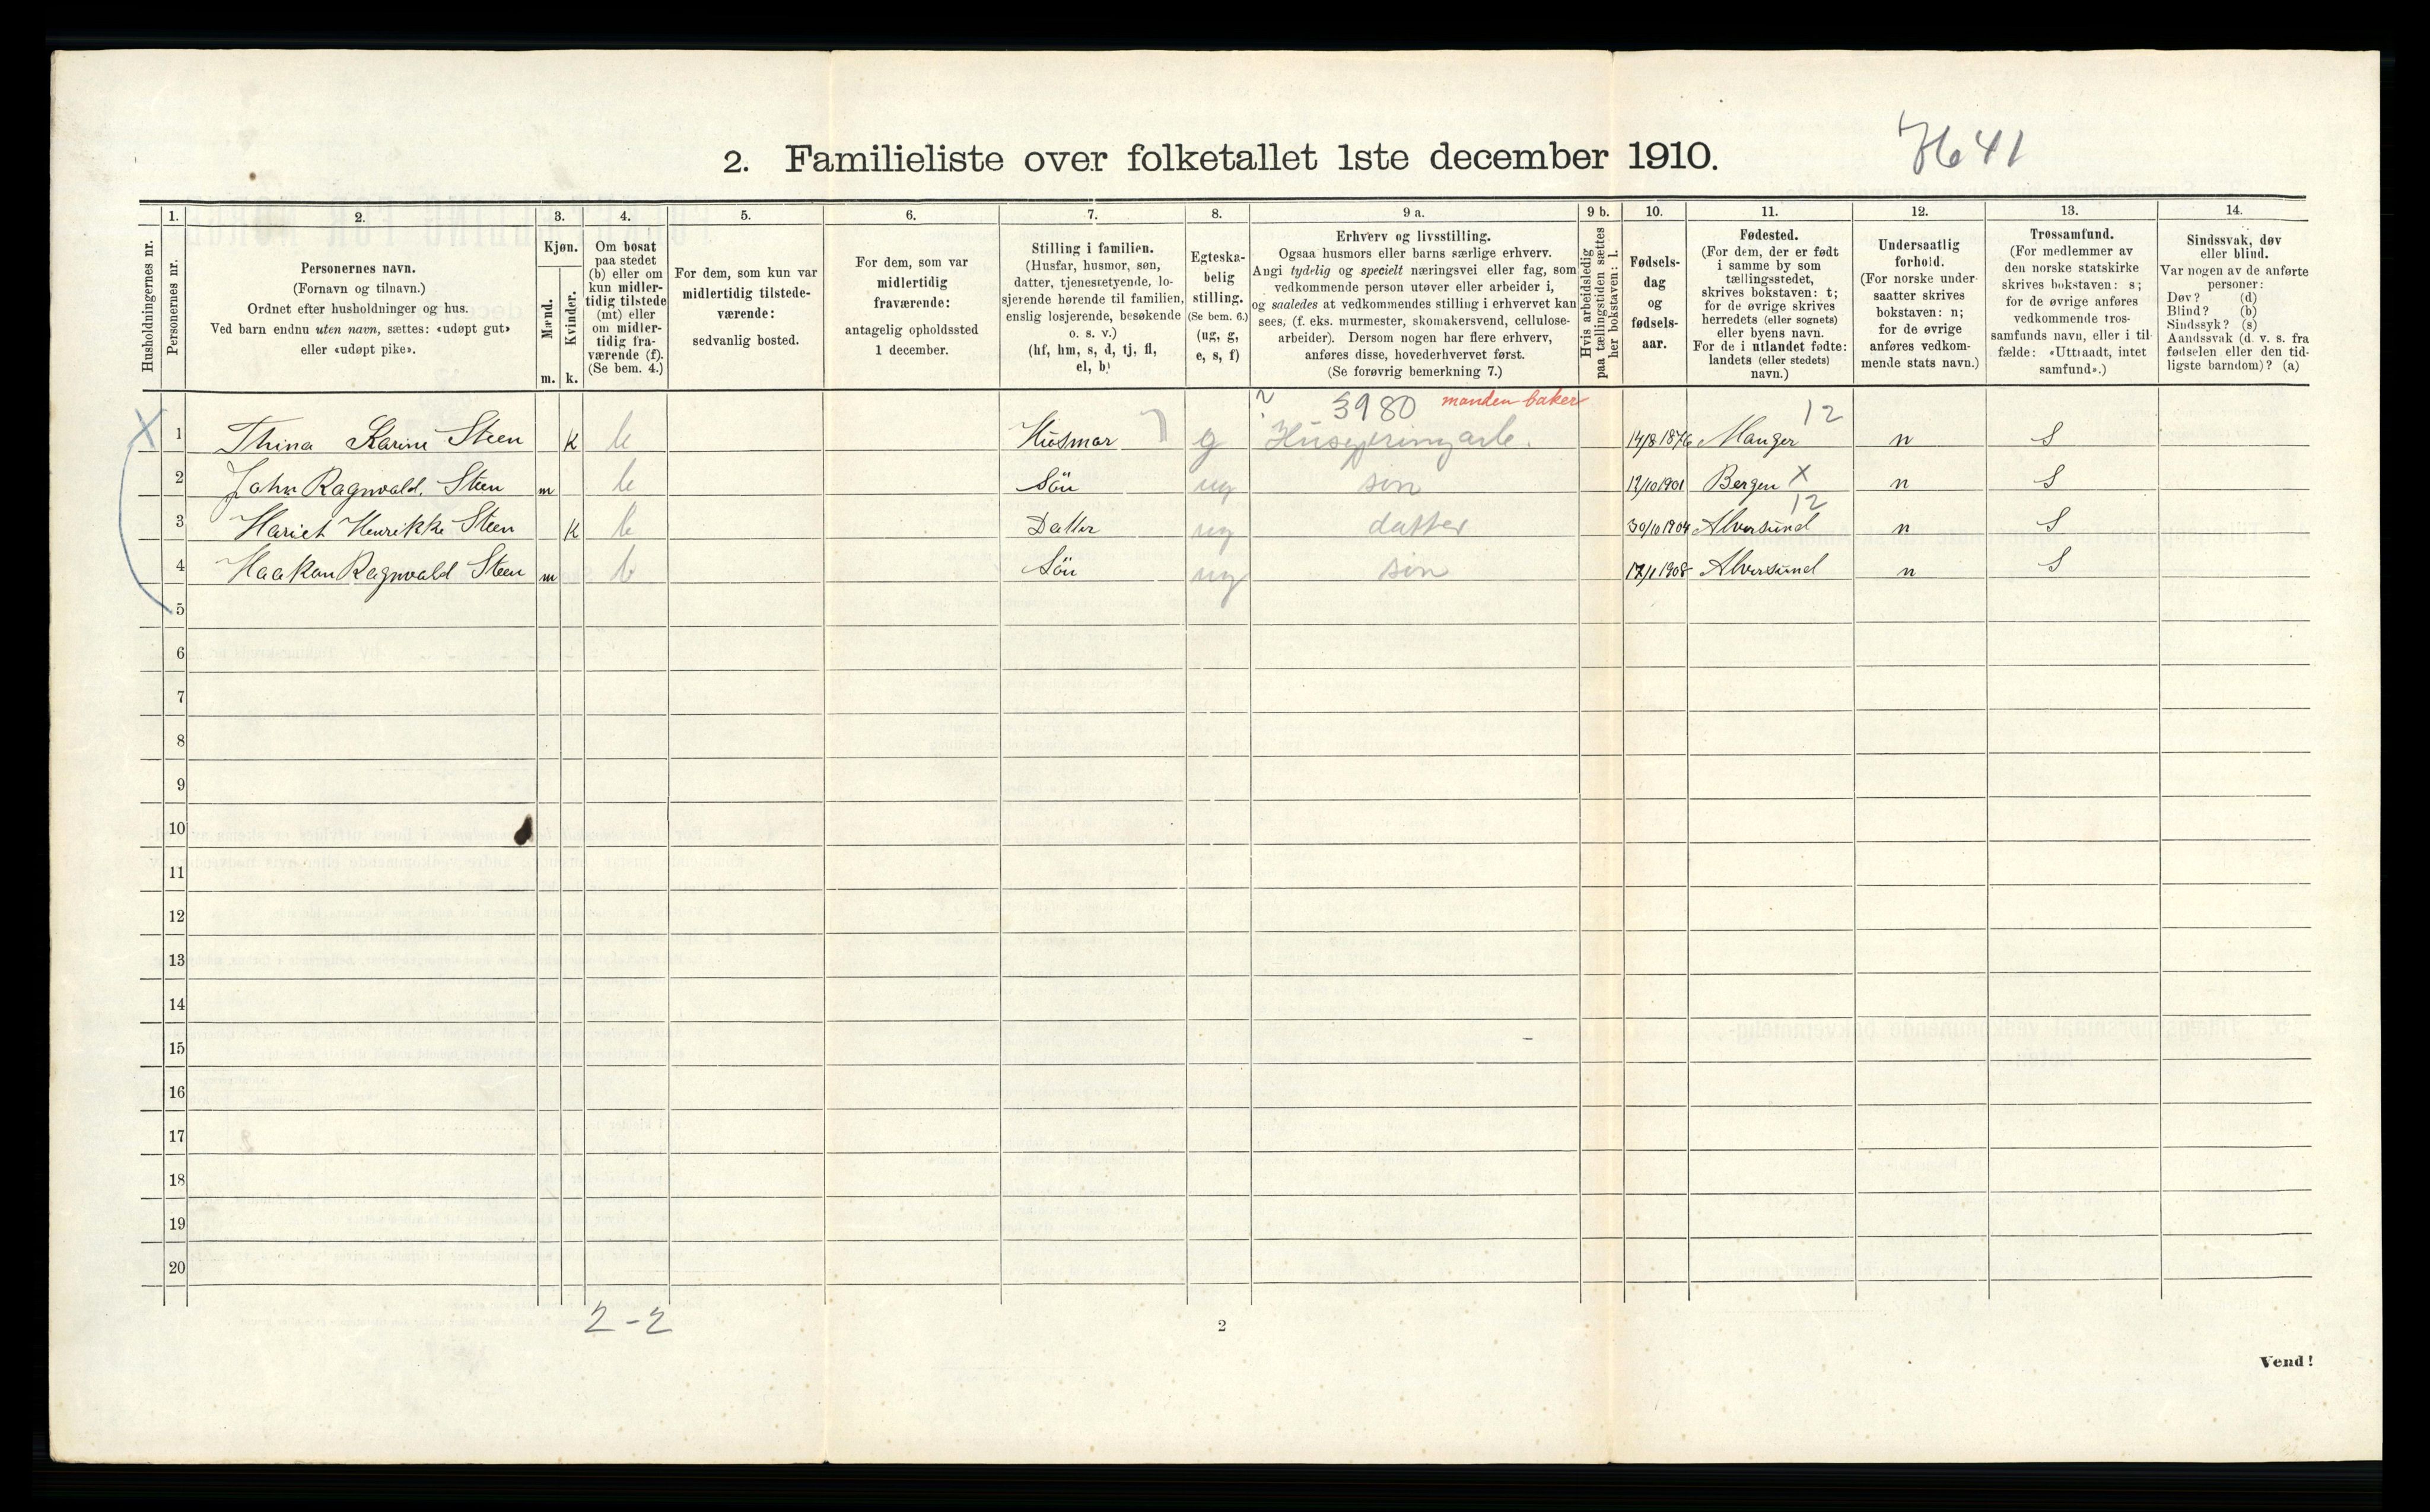 7641
2. Familieliste over folketallet 1ste december 1910.
Husholdningernes nr.
1.
Personernes nr.
2.
Personernes navn.
(Fornavn og tilnavn.)
Ordnet efter husholdninger og hus.
Ved barn endnu uten navn, sættes: «udøpt gut»
eller «udøpt pike».
3.
Kjøn.
Mænd.
Kvinder.
m.
k.
4.
Om bosat
paa stedet
(b) eller om
kun midler-
tidig tilstede
(mt) eller
om midler-
tidig fra-
værende (f).
(Se bem. 4.)
5.
For dem, som kun var
midlertidig tilstede-
værende:
sedvanlig bosted.
6.
For dem, som var
midlertidig
fraværende:
antagelig opholdssted
1 december.
7.
Stilling i familien.
(Husfar, husmor, søn,
datter, tjenestetyende, lo-
sjerende hørende til familien,
enslig losjerende, besøkende
o. s. v.)
(hf, hm, s, d, tj, fl,
el, b)
8.
Egteska-
belig
stilling.
(Se bem. 6.)
(ug, g,
e, s, f)
9 a.
Erhverv og livsstilling.
Ogsaa husmors eller barns særlige erhverv.
Angi tydelig og specielt næringsvei eller fag, som
vedkommende person utøver eller arbeider i,
og saaledes at vedkommendes stilling i erhvervet kan
sees, (f. eks. murmester, skomakersvend, cellulose-
arbeider). Dersom nogen har flere erhverv,
anføres disse, hovederhvervet først.
(Se forøvrig bemerkning 7.)
9 b.
Hvis arbeidsledig
paa tællingstiden sættes
her bokstaven: l.
10.
Fødsels-
dag
og
fødsels-
aar.
11.
Fødested.
(For dem, der er født
i samme by som
tællingsstedet,
skrives bokstaven: t;
for de øvrige skrives
herredets (eller sognets)
eller byens navn.
For de i utlandet fødte:
landets (eller stedets)
navn.)
12.
Undersaatlig
forhold.
(For norske under-
saatter skrives
bokstaven: n;
for de øvrige
anføres vedkom-
mende stats navn.)
13.
Trossamfund.
(For medlemmer av
den norske statskirke
skrives bokstaven: s;
for de øvrige anføres
vedkommende tros-
samfunds navn, eller i til-
fælde: «Uttraadt, intet
samfund».)
14.
Sindssvak, døv
eller blind.
Var nogen av de anførte
personer:
Døv? (d)
Blind? (b)
Sindssyk? (s)
Aandssvak (d. v. s. fra
fødselen eller den tid-
ligste barndom)? (a)
? 3980 manden baker 12
X 1 Thina Karine Steen K b Husmor g 14/8 1876 Manger n S
2 John Ragnvald. Steen m b Sön ug sön 12/10 1901 Bergen X n S
12
3 Hariet Henrikke Steen K b Datter ug datter 30/10 1904 Alversund n S
4 Haakon Ragnvald Steen m b Sön ug sön 17/1 1908 Alversund n S
5
6
7
8
9
10
11
12
13
14
15
16
17
18
19
20
2-2
2
Vend!